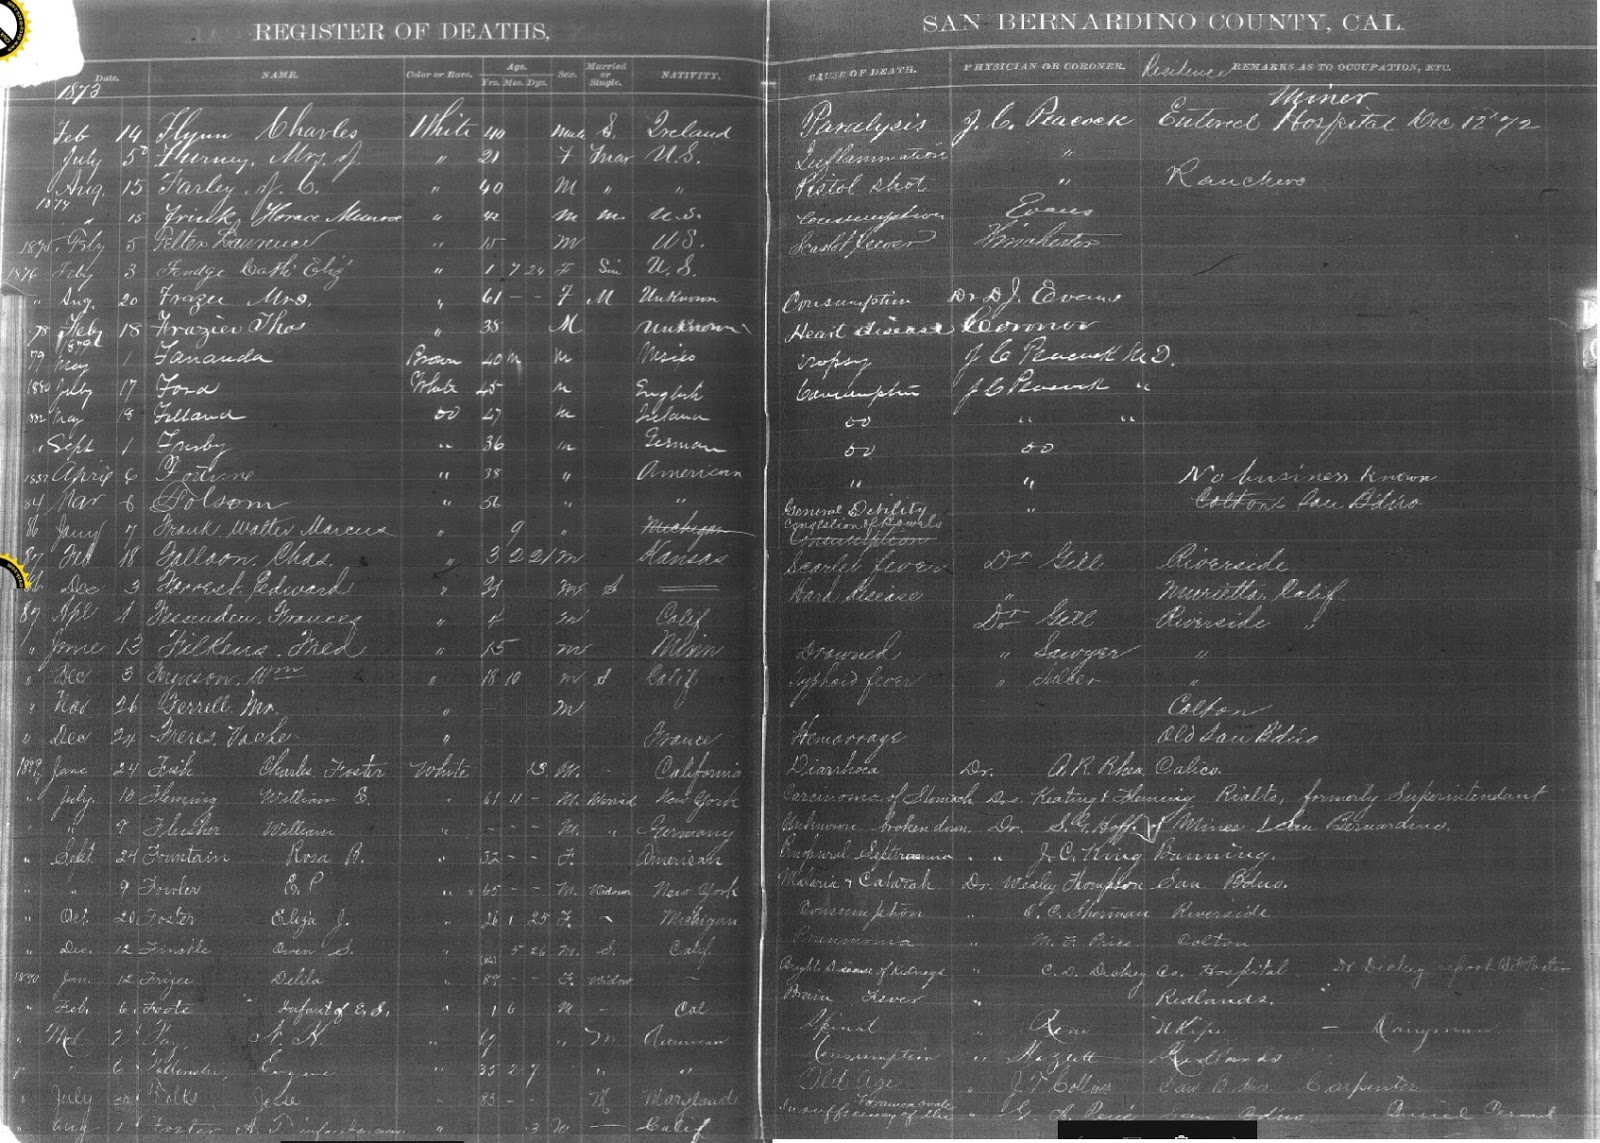 REGISTER OF DEATHS, SAN BERNARDINO COUNTY, CAL.
Date. NAME. Color or Race. Age. Yrs. Mos. Dys. Sex. Married or Single. NATIVITY. CAUSE OF DEATH. PHYSICIAN OR CORONER. Residence REMARKS AS TO OCCUPATION, ETC.
1873
Miner
Feb 14 Flynn Charles White 40 Male S. Ireland Paralysis J. C. Peacock Entered Hospital Dec 12 '72
July 5 Furney, Mrs. " 21 F Mar U.S. Inflammation "
Aug. 15 Farley " 40 M " " Pistol shot " Ranchero
1874
" 15 Frink, Horace Munroe " 42 m m. U.S. Consumption Evans
Feby 5 Felter Lawrence " 15 m U.S. Scarlet fever Winchester
1876 Feby 3 Fendge Cath. Eliz " 1 7 24 F Sin U.S.
" Aug. 20 Frazee Mrs. " 61 - - F M Unknown Consumption Dr D J. Evans
78 Feby 18 Frazier Thos " 38 M Unknown Heart disease Coroner
1879
79 May 1 Fananda Brown 40 m m Mexico Dropsy J C Peacock M.D.
1880 July 17 Ford White 45 m English Consumption J C Peacock "
1882 May 18 Filland do 47 m Ireland do " "
" Sept 1 Frisby " 36 m German do do
April 6 Fortune " 38 " American " " No business known
84 Mar 6 Folsom " 56 " " General Debility " Colton San B'dino
86 Jany 7 Frank Walter Marcus " 9 " Michigan Congestion of Bowels Consumption
87 Feb 18 Falloon Chas. " 3 2 21 m Kansas Scarlet fever Dr Gill Riverside
86 Dec 3 Forrest Edward " m S Hard Disease " Murietta, Calif.
87 Apl Fessenden, Frances " 4 m Calif Dr Gill Riverside "
" June 13 Filkens, Fred " 15 m Minn Drowned " Sawyer "
" Dec 3 Wm " 18 10 m S Calif Typhoid fever " "
" Nov 26 Ferrill Mr. " - m Colton
" Dec 24 Freres, Vache " - France Hemorrage Old San B'dino
1889 June 24 Fish Charles Foster White 13 M. - California Diarrhoea Dr. A. R. Rhea Calico.
" July. 10 Fleming William E. " 61 11 - M. Married New York Carcinoma of Stomach Drs. Keating & Fleming Rialto, formerly Superintendent
" " 9 Flusher William " - - - M. " Germany Unknown broken down Dr. S. G. Huff. of Mines. San Bernardino.
" Sept. 24 Fountain Rosa B. " 32 - - F. American Puerperal Septicaemia " " J. C. King Banning.
" " 9 Fowler E. P " 65 - - M. Widower New York Malaria & Catarah Dr. Wesley Thompson San Bdno.
" Oct. 20 Foster Eliza J. " 26 1 25 F. - Michigan Consumption " O. C. Sherman Riverside
" Dec. 12 Owen S. " 5 26 M. S. Calif. Pneumonia " M. F. Price. Colton
1890 Jan. 12 Frizee Delila " 89 - - F. Widow - Bright Disease of Kidneys " C. D. Dickey Co. Hospital Dr Dickey
" Feb. 6. Foote Infant of E. S. " 1 6 M - Cal Brain Fever " Redlands.
" Fay, N. K. " " M. American Spinal " Rene - Dairyman
" " 6 Eugene 35 2 7 " " Consumption " " Hazlett Redlands
" July Folks Jesse " 83 - - M Maryland Old Age " San Bdno Carpenter
" Aug 1 Foster A. T infant " 3 - Calif Insufficiency of the Foramen ovale " San Bdno